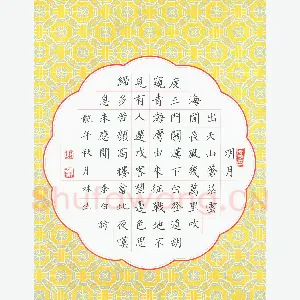 明月
出天山蒼茫雲
海間長風幾萬里吹
度玉門關漢下白登道胡
窺青海灣由來征戰地不
見有人還戍客望邊色思
歸多苦顏高樓當此夜嘆
息未應閒 李白詩
年秋月